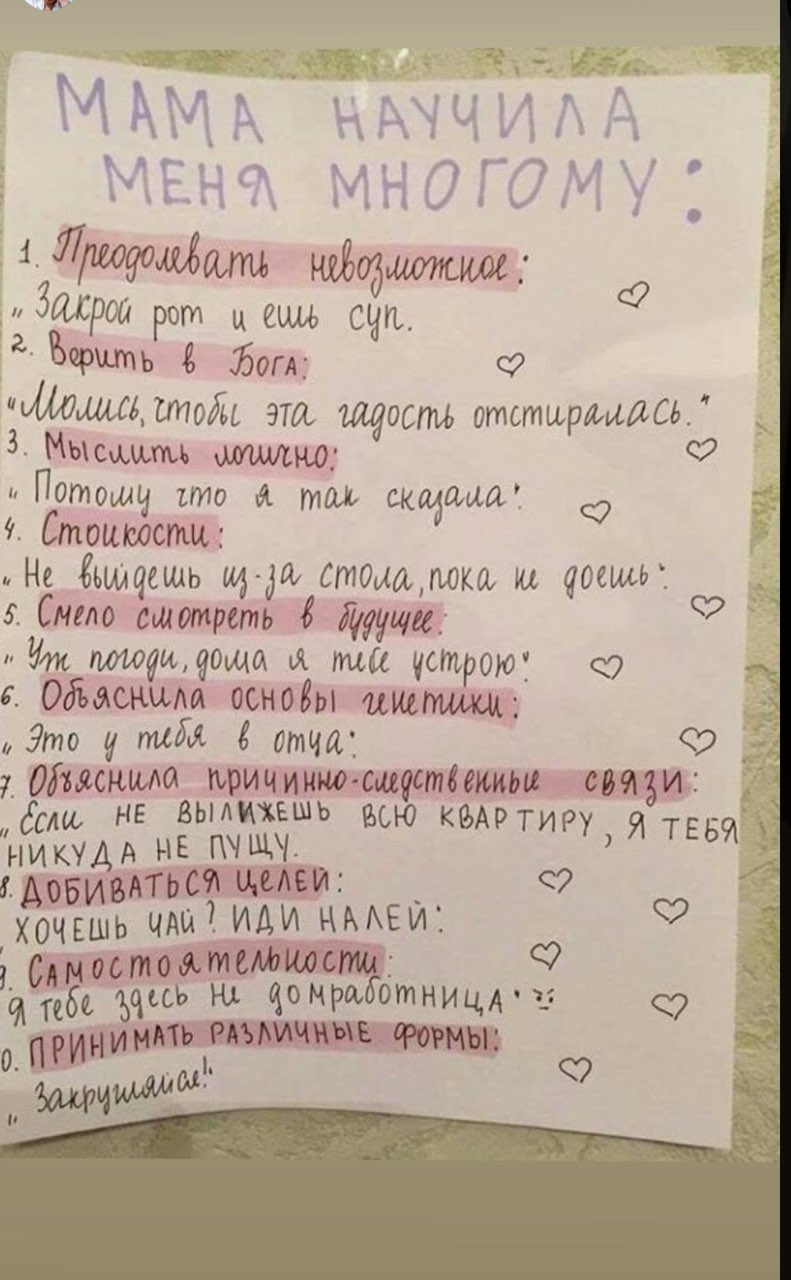 МАМА НАУЧИЛА
МЕНЯ МНОГОМУ:
1. Преодолевать невозможное:
„Закрой рот и ешь суп.
2. Верить в Бога:
“Молись, чтобы эта гадость отстиралась.”
3. Мыслить логично:
„Потому что я так сказала".
4. Стойкости:
„Не выйдешь из-за стола, пока не доешь".
5. Смело смотреть в будущее:
„Уж погоди, дома я тебе устрою"
6. Объяснила основы генетики:
„Это у тебя в отца".
7. Объяснила причинно-следственные связи:
„Если не вылижешь всю квартиру, я тебя
никуда не пущу.
8. Добиваться целей:
Хочешь чай? Иди налей".
9. Самостоятельности:
Я тебе здесь не домработница"
0. Принимать различные формы:
„Закругляйся!"